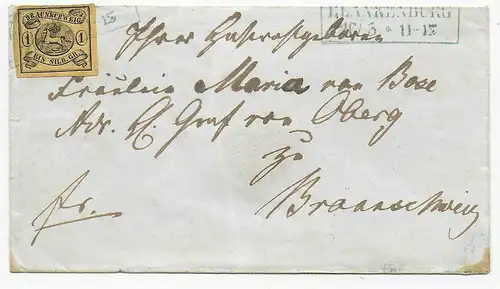 BRAUNSCHWEIG
1 1
EIN SILB. GR.
12
BLANKENBURG
5 * 11-12
Ihrer Hochwohlgeboren
Fräulein Maria von Bose
Adr. Graf von Oberg
zu
fr.
Braunschweig